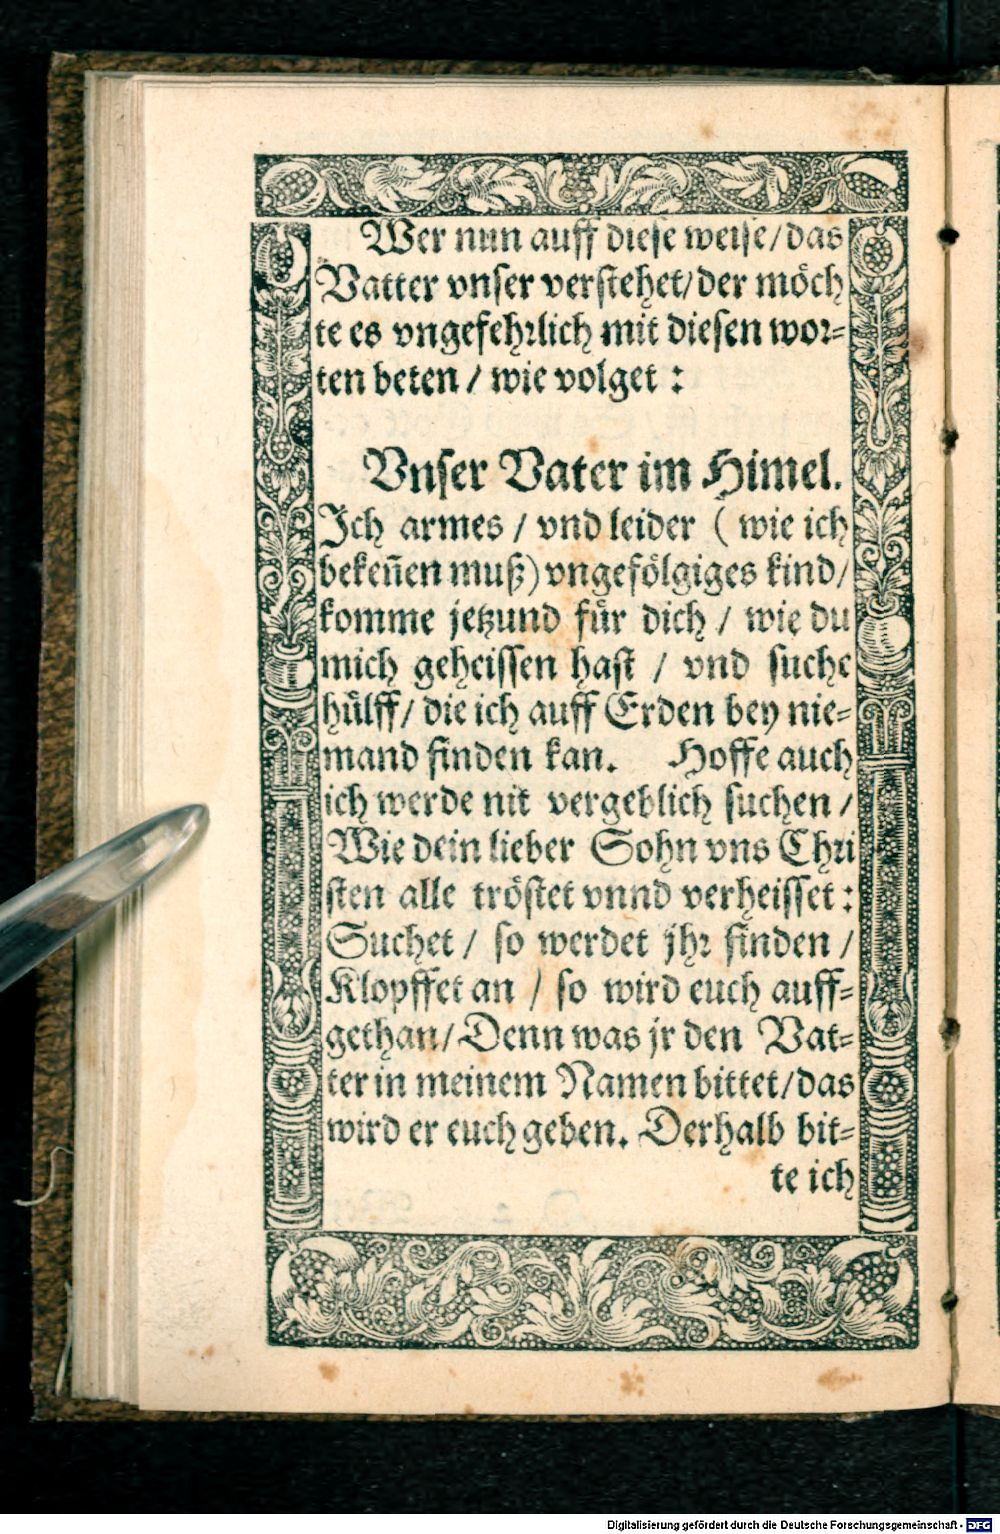 Wer nun auff dieſe weiſe/das
Vatter vnſer verſtehet/der möch
te es vngefehrlich mit dieſen wor⸗
ten beten / wie volget :
Vnſer Vater im Himel.
Ich armes / vnd leider ( wie ich
bekeñen muß) vngefölgiges kind/
komme jetzund fuͤr dich / wie du
mich geheiſſen haſt / vnd ſuche
huͤlff/ die ich auff Erden bey nie⸗
mand finden kan. Hoffe auch
ich werde nit vergeblich ſuchen /
Wie dein lieber Sohn vns Chri
ſten alle tröſtet vnnd verheiſſet :
Suchet / ſo werdet jhr finden /
Klopffet an / ſo wird euch auff⸗
gethan/ Denn was jr den Vat⸗
ter in meinem Namen bittet/das
wird er euch geben. Derhalb bit⸗
te ich
Digitalisierung gefördert durch die Deutsche Forschungsgemeinschaft - DFG